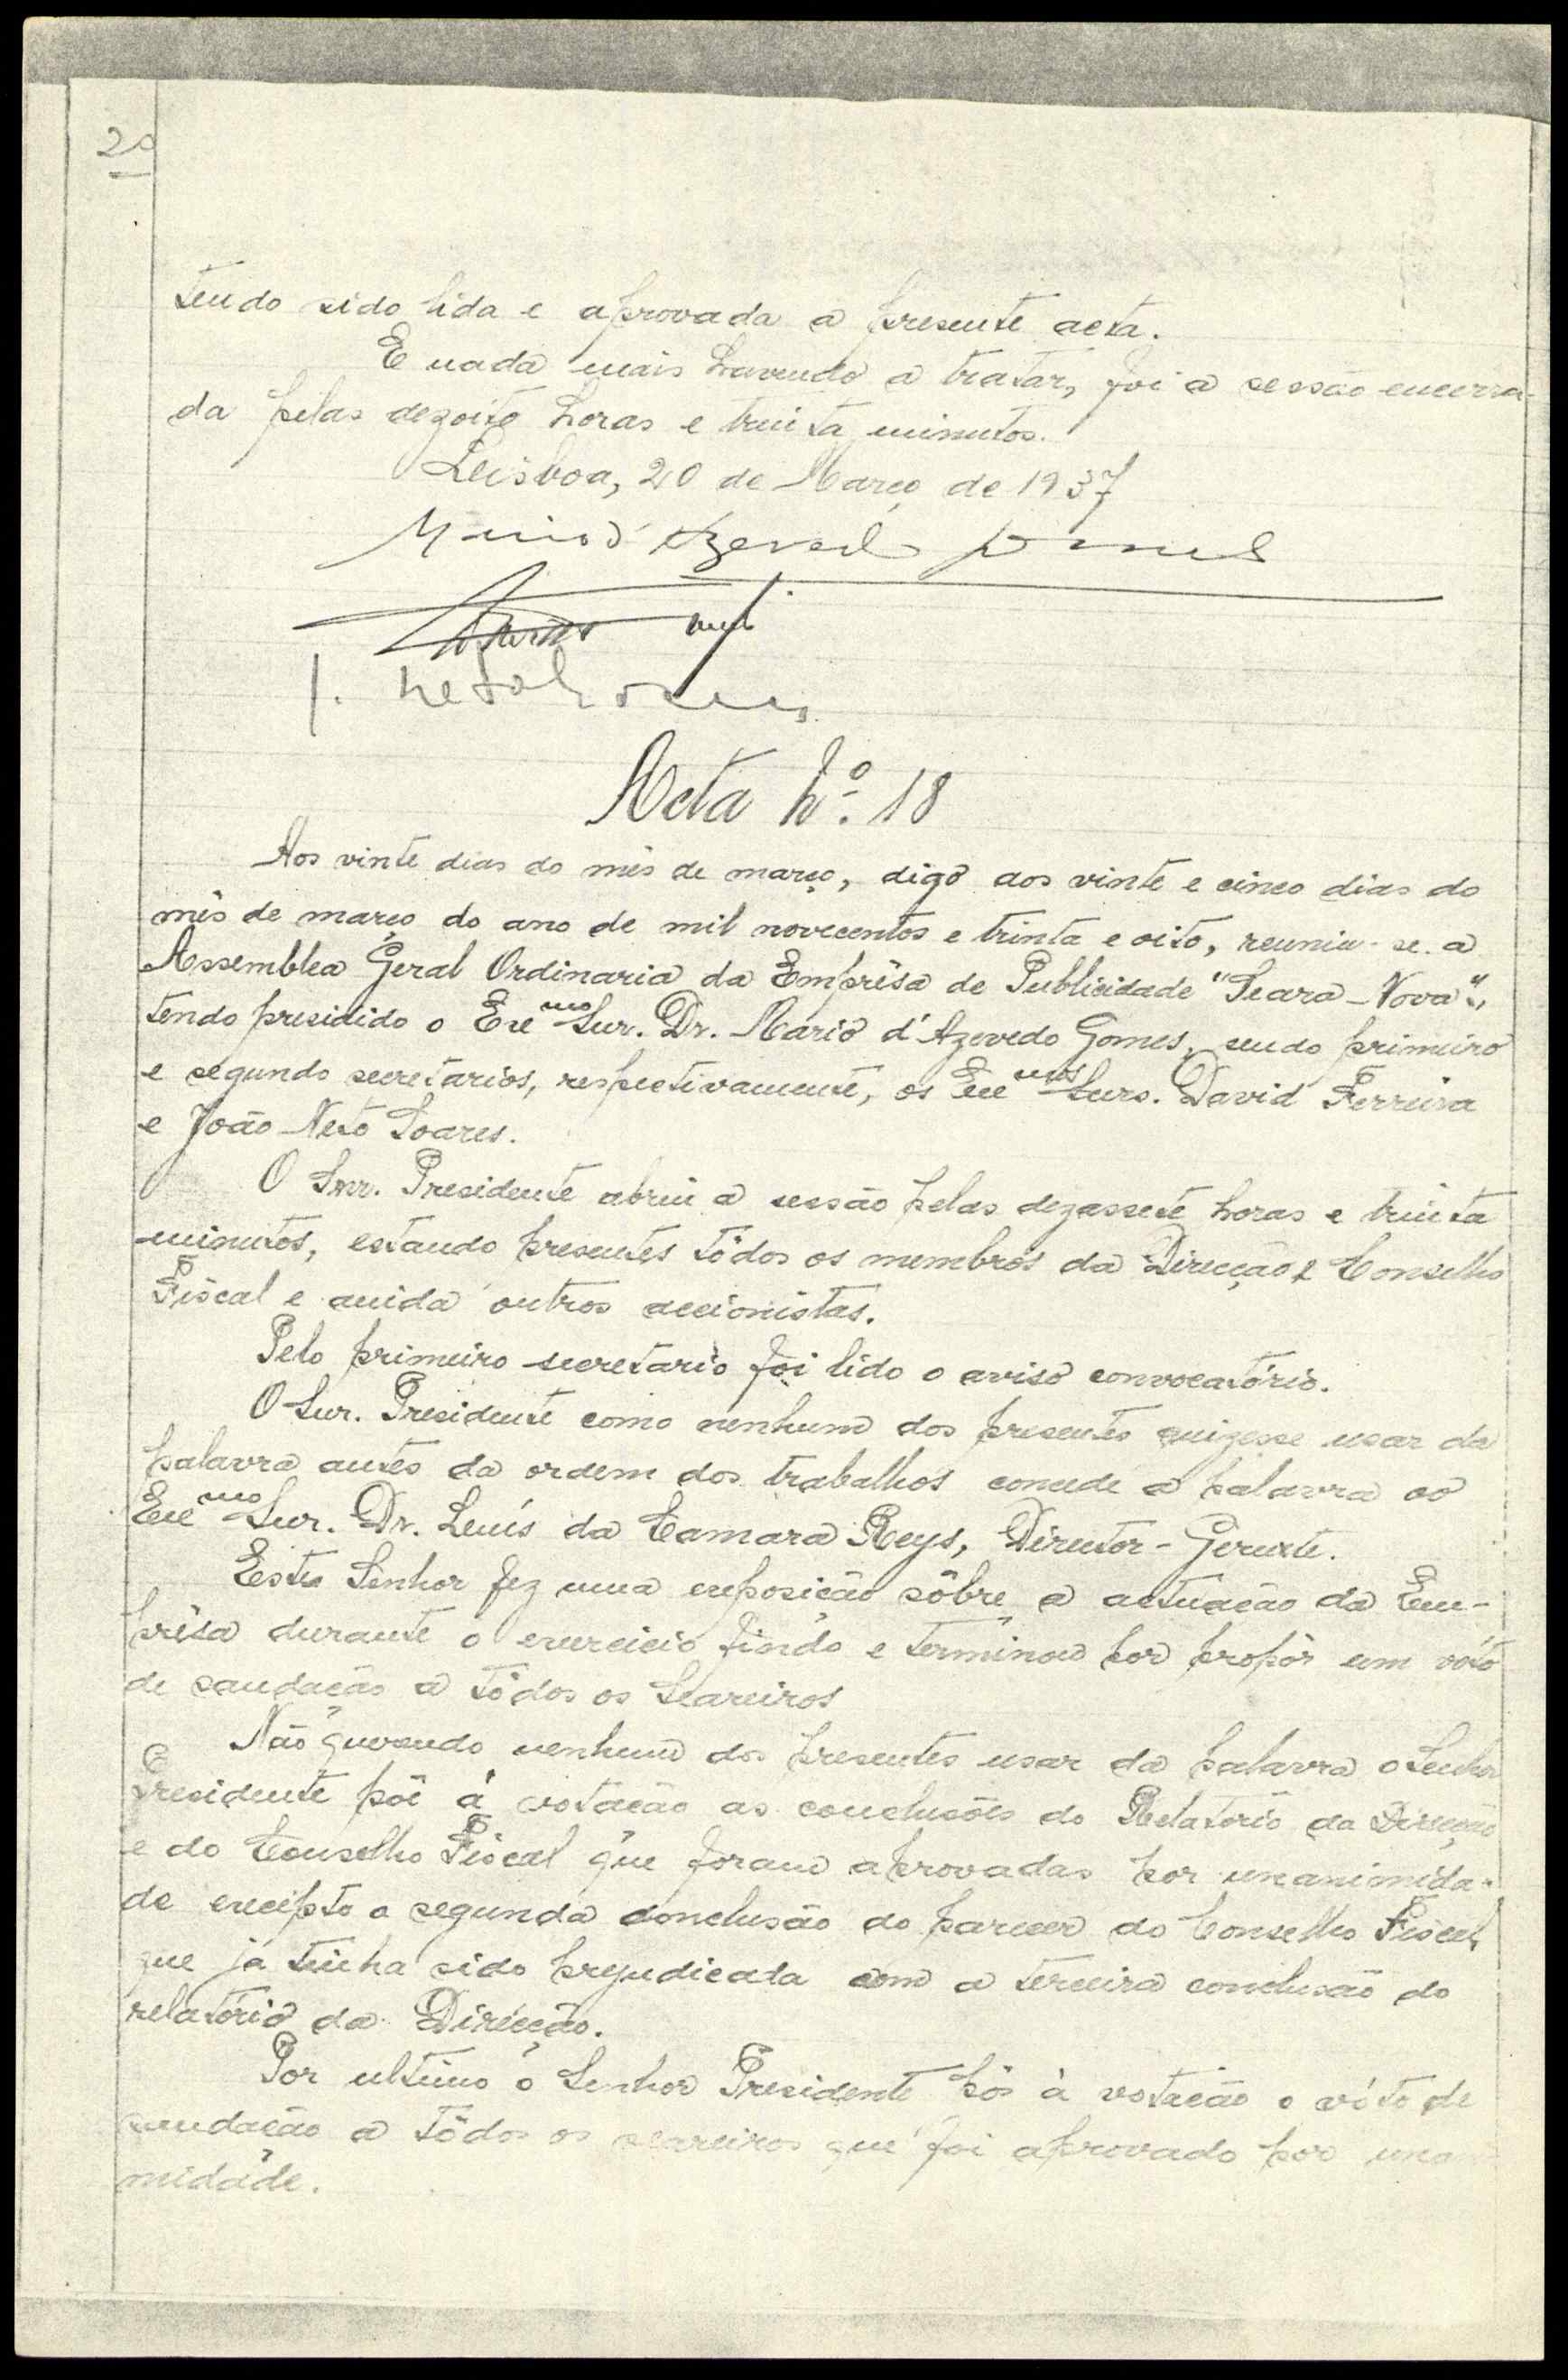 20
tendo sido lida e aprovada a presente acta.
E nada mais havendo a tratar, foi a sessão encerra-
da pelas dezoito horas e trinta minutos.
Lisboa, 20 de Março de 1937
Mario d'Azevedo Gomes
J. Neto Soares
Acta Nº. 18
Aos vinte dias do mês de março, digo aos vinte e cinco dias do
mês de março do ano de mil novecentos e trinta e oito, reuniu-se a
Assemblea Geral Ordinaria da Emprêsa de Publicidade "Seara-Nova",
tendo presidido o Exe mo Snr. Dr. Mario d'Azevedo Gomes, sendo primeiro
e segundo secretarios, respectivamente, os Exe mos Snrs. David Ferreira
e João Neto Soares.
O Snr. Presidente abriu a sessão pelas dezassete horas e trinta
minutos, estando presentes tôdos os membros da Direcção e Conselho
Fiscal e ainda outros accionistas.
Pelo primeiro secretario foi lido o aviso convocatório.
O Snr. Presidente como nenhum dos presentes quizesse usar da
palavra antes da ordem dos trabalhos concede a palavra ao
Exe mo Snr. Dr. Luís da Camara Reys, Director-Gerente.
Este Senhor fez uma exposição sôbre a actuação da Em-
prêsa durante o exercicio findo e terminou por propôr um voto
de saudação a tôdos os Seareiros
Não querendo nenhum dos presentes usar da palavra o Senhor
Presidente põi á votação as conclusões do Relatorio da Direcção
e do Conselho Fiscal que foram aprovadas por unanimida-
de excepto a segunda conclusão do parecer do Conselho Fiscal,
que já tinha sido prejudicada com a terceira conclusão do
relatório da Direcção.
Por ultimo o Senhor Presidente pôs à votação o vóto de
saudação a tôdos os seareiros que foi aprovado por unani
midade.